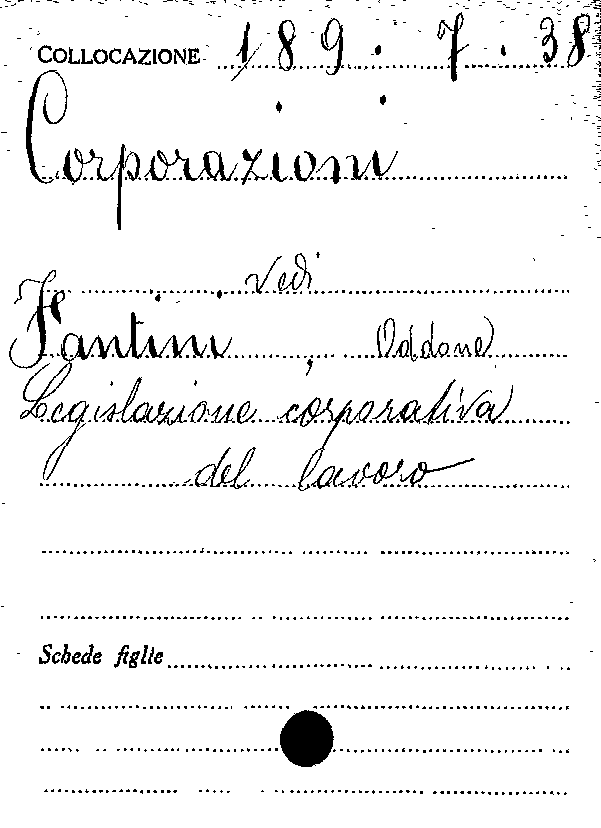 COLLOCAZIONE 189.7.38
Corporazioni
Vedi
Fantini, Oddone
Legislazione corporativa
del lavoro
Schede figlie